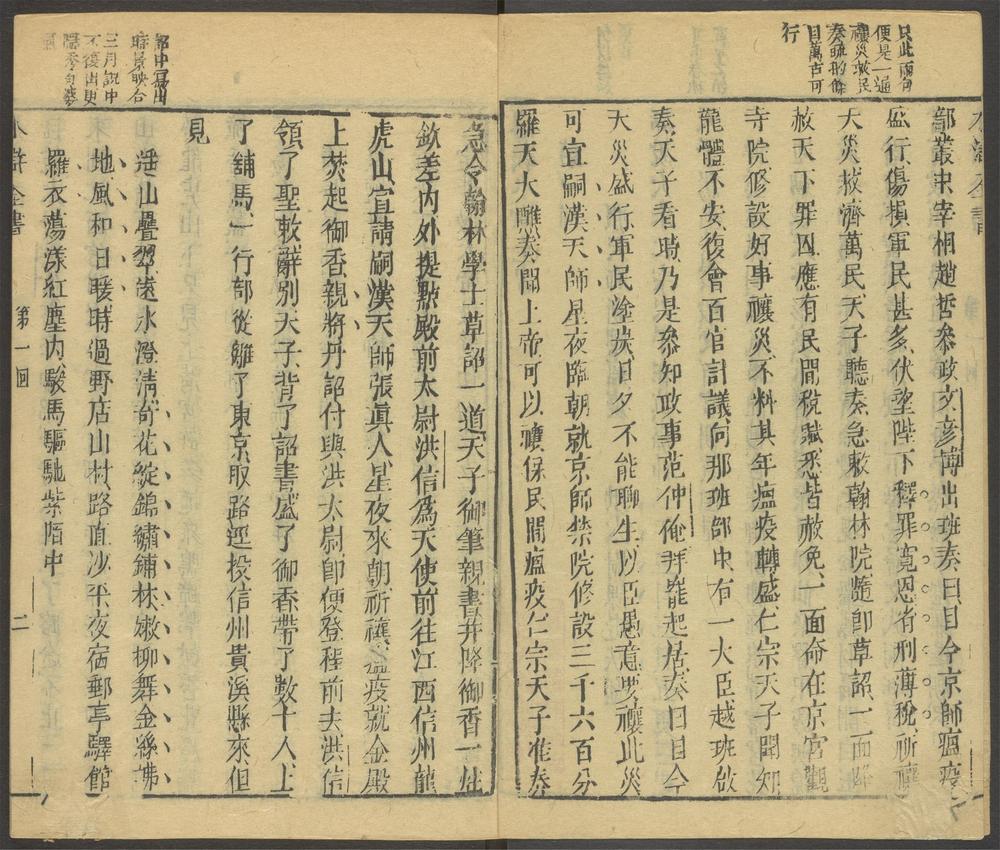 只此兩句
便是一過
禳災救民
奏疏的條
目萬古可
行
部叢中宰相趙哲叅政文彥博出班奏曰目今京師瘟疫
盛行傷損軍民甚多伏望陛下釋罪寬恩省刑薄稅祈禳
天災救濟萬民天子聽奏急敕翰林院隨即草詔一面降
赦天下罪囚應有民間稅賦悉皆赦免一面命在京宮觀
寺院修設好事禳災不料其年瘟疫轉盛仁宗天子聞知
龍體不安復會百官計議向那班部中有一大臣越班啟
奏天子看時乃是叅知政事范仲俺拜罷起居奏曰目今
天災盛行軍民塗炭日夕不能聊生以臣愚意要禳此災
可宜嗣漢天師星夜臨朝就京師禁院修設三千六百分
羅天大醮奏聞上帝可以禳保民間瘟疫仁宗天子准奏
都中寫出
時景映合
三月說中
不復出更
急令翰林學士草詔一道天子御筆親書并降御香一炷
欽差內外提點殿前太尉洪信爲天使前往江西信州龍
虎山宣請嗣漢天師張眞人星夜來朝祈禳瘟疫就金殿
上焚起御香親將丹詔付與洪太尉即便登程前去洪信
領了聖敕辭別天子背了詔書盛了御香帶了數十人上
了舖馬一行部從離了東京取路逕投信州貴溪縣來但
見
遥山疊翠遠水澄清奇花綻錦繡鋪林嫩柳舞金絲拂
地風和日暖時過野店山村路直沙平夜宿郵亭驛館
羅衣蕩漾紅塵內駿馬驅馳紫陌中
水滸全書
第一回
二